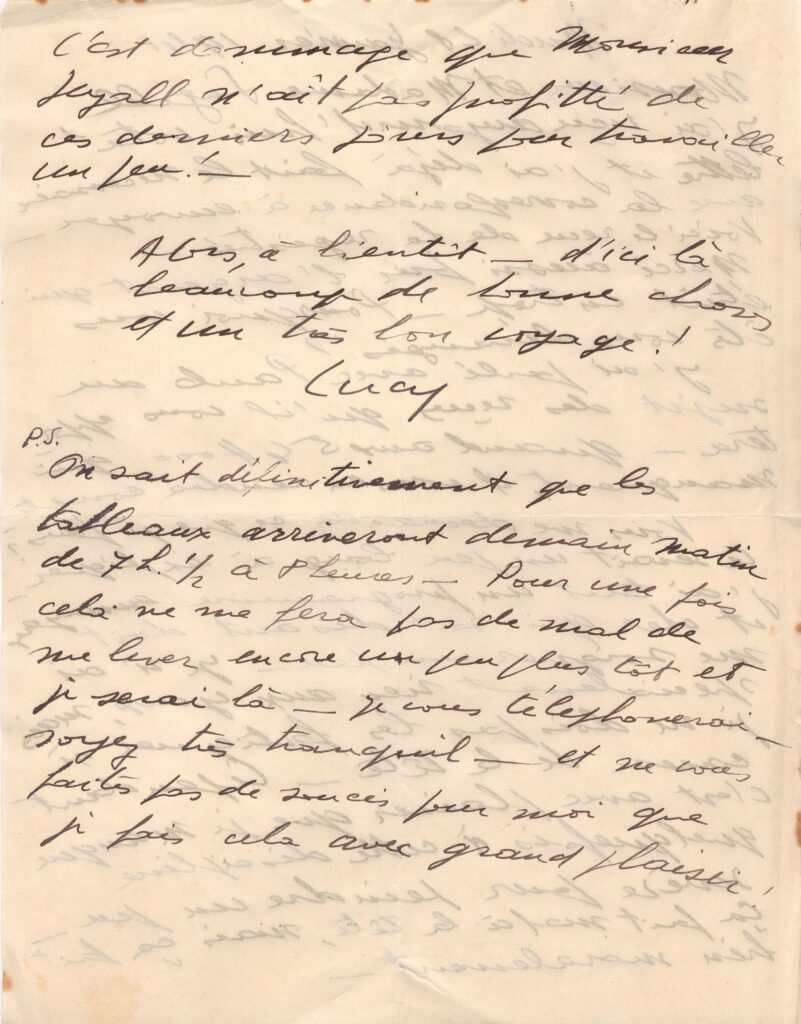 C'est dommage que Monsieur
n'aît pas profitté de
ces derniers jours pour travailler
un peu! —
Alors, à bientôt — d'ici là
beaucoup de bonne choses
et un très bon voyage!
Lucy
P.S.
On sait définitivement que les
tableaux arriveront demain matin
de 7 h. 1/2 à 8 heures — Pour une fois
cela ne me fera pas de mal de
me lever encore un peu plus tôt et
je serai là — je vous téléphonerai —
soyez très tranquil — et ne vous
faites pas de soucis pour moi que
je fais cela avec grand plaisir!